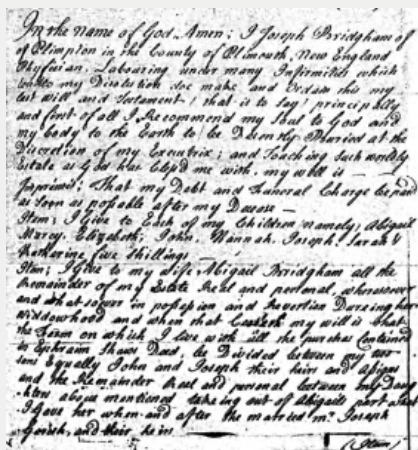 In the Name of God Amen; I Joseph Bridgham of
of Plimpton in the County of Plimouth, New England
Physician, Labouring under many Infirmities which
tend to my Disolution doe make and Ordain this my
last will and Testament; that is to say; principally
and first of all I Recommend my Soul to God and
my body to the Earth to be Decently Buried at the
Discretion of my Executrix; and Touching Such worldly
Estate as God has Blest me with, my will is
Imprimis; That my Debt and Funeral Charge be paid
as soon as possable after my Decease
Item; I Give to Each of my Children namely; Abigail
Mercy. Elizabeth; John, Hannah. Joseph; Sarah &
Katharine five Shillings
Item; I Give to my Wife, Abigail Bridgham all the
Remainder of my Estate Real and personal, wheresoever
and whatsoever in possession and Revertion Dureing her
Widdowhood and when that my will is that
the Farm on which I live with all the purchas Contained
in Ephraim Thaws Deed, be Divided between my two
sons Equally John and Joseph their heirs and Asigns
and the Remainder Real and personal between my Daug
hters above mentioned takeing out of Abigails part what
I Gave her when and after she married mr. Joseph
and their heirs
(Item)